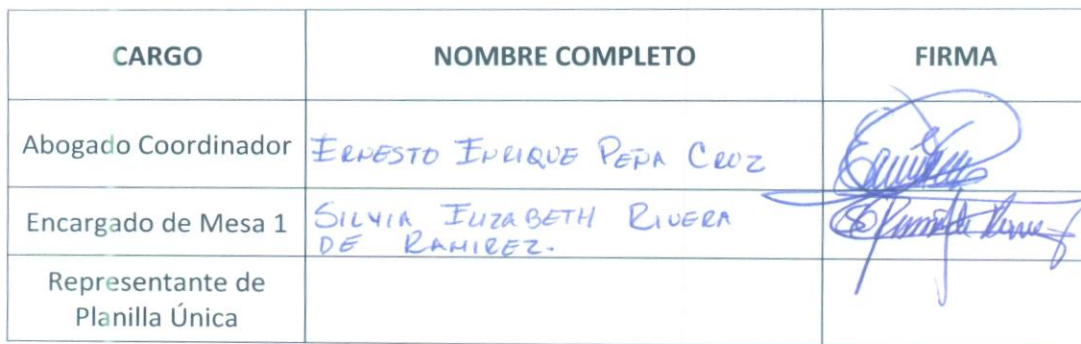 CARGO NOMBRE COMPLETO FIRMA
Abogado Coordinador ERNESTO ENRIQUE PEÑA CRUZ
Encargado de Mesa 1 SILVIA ELIZABETH RIVERA
DE RAMIREZ.
Representante de
Planilla Única